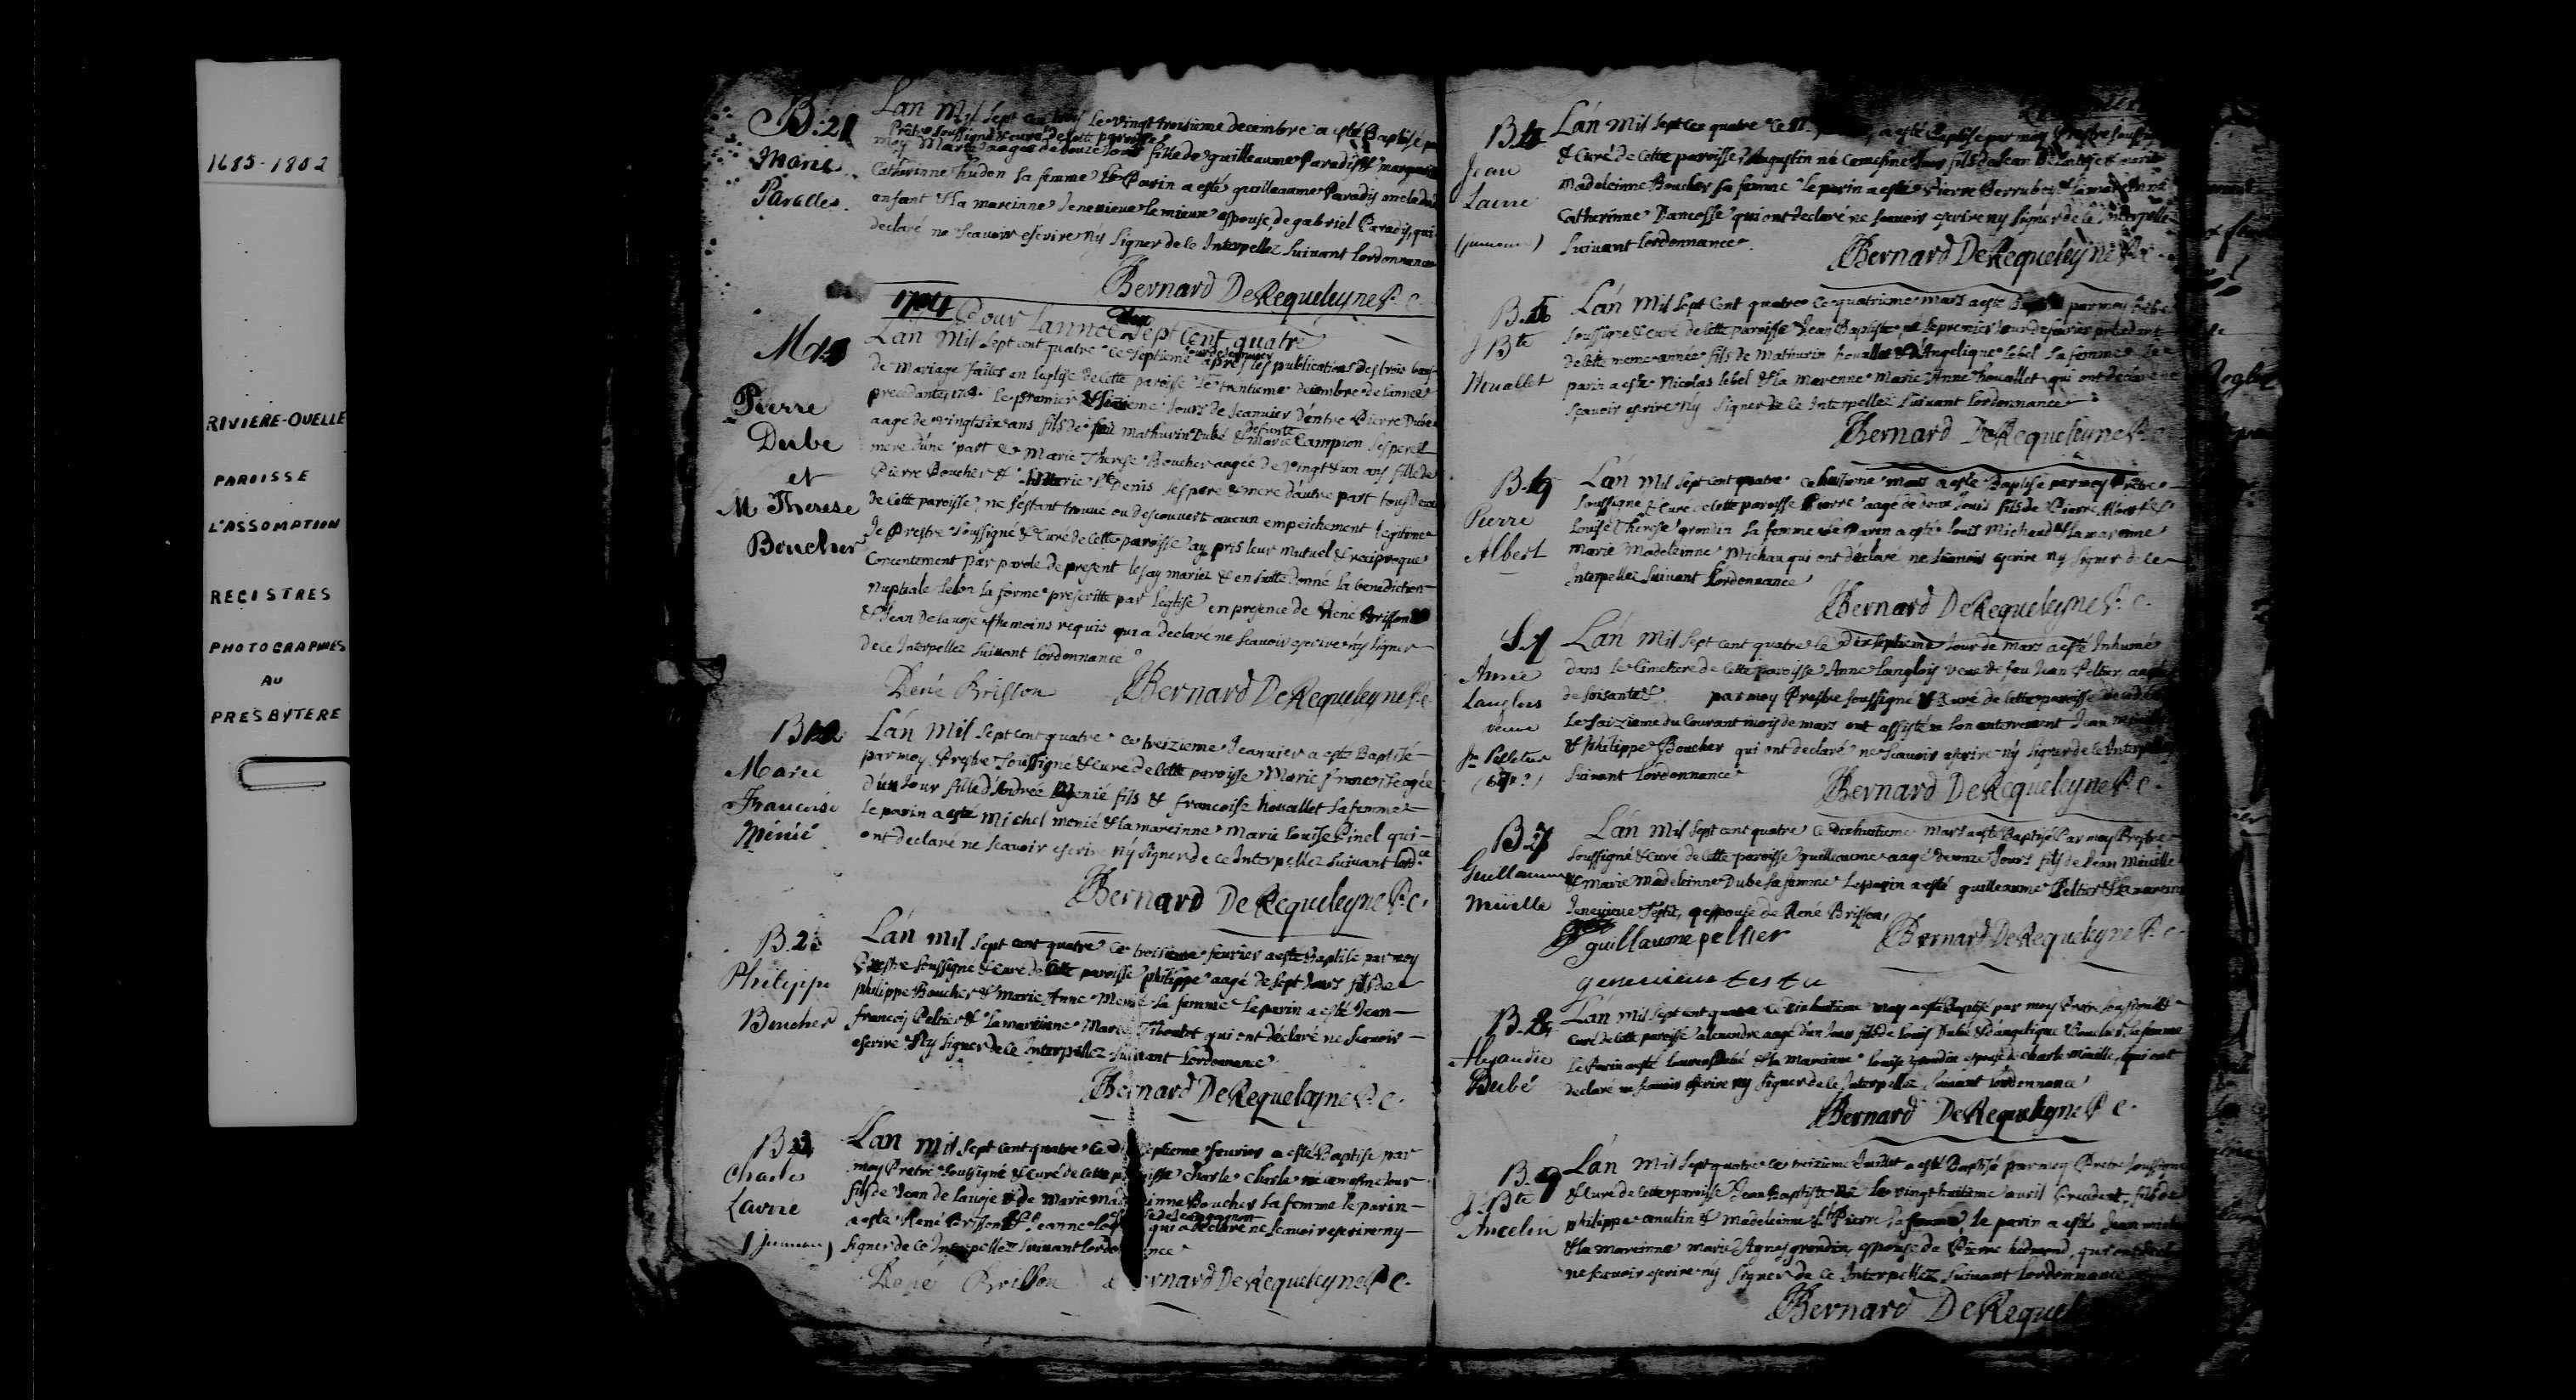 1685-1802
RIVIERE-OUELLE
PAROISSE
L'ASSOMPTION
REGISTRES
PHOTOGRAPHIES
AU
PRESBYTERE
B. 21
Marie
Paradis
Lan Mil Sept cen trois le vingt troisieme decembre a esté Baptisé
Prêtre soussigné & curé de cette paroisse
moy Marie aagée de douze jours fille de guilleaume Paradis &
Catherinne hudon sa femme le Parin a esté guilleaume Paradis oncle
enfant & la mareinne Jenevieue lemieux espouse de gabriel Paradis, qui
declaré ne scavoir escrire ny signer de ce Interpellez suivant lordonnance
Bernard DeRequeleyne P. C.
1704 Pour lannee Sept cent quatre
M
Pierre
Dube
et
M Therese
Boucher
Lan Mil Sept cent quatre ce septieme apres les publications des trois bans
de Mariage faites en leglise de cette paroisse le trentieme decembre de lannee
precedante le premier & sixieme Jours de Jeanvier dentre Pierre Dube
aagé de vingt six ans fils de feu Mathurin Dubé & defunte Marie Campion ses pere &
mere d'une part & Marie Therese Boucher aagée de vingt & un ans fille de
Pierre Boucher & Marie St Denis ses pere & mere d'autre part tous deux
de cette paroisse ne s'estant trouvé ou descouvert aucun empeichement legitime
Je Prestre soussigné & Curé de cette paroisse ay pris leur mutuel & reciproque
Concentement par parole de present les ay mariez & en suitte donné la benediction
nuptiale selon la forme prescritte par leglise en presence de René Brisson
& Jean Delavoje themoins requis qui a declaré ne scavoir escrire ny signer
de ce Interpellez suivant lordonnance
René Brisson Bernard DeRequeleyne P. C.
B
Marie
Francoise
Minié
Lán Mil Sept cent quatre ce treizieme Jeanvier a esté Baptisé
par moy Prestre soussigné & Curé de cette paroisse Marie francoise agée
d'un Jour fille d'Andrée Menié fils & francoise houallet sa femme
le parin a esté Michel menié & la mareinne Marie Louise Pinel qui
ont declaré ne scavoir escrire ny signer de ce Interpellez suivant lordce
Bernard DeRequeleyne P. C.
B. 2
Philippe
Boucher
Lán Mil Sept cent quatre ce troisieme feurier a esté Baptisé par moy
Prestre soussigné & Curé de cette paroisse philippe aagé de sept Jours fils de
philippe Boucher & Marie Anne Menié sa femme le parin a esté Jean
francois Peltier & la mareinne Marie Thiboutot qui ont déclaré ne scavoir
escrire Ny signer de ce Interpellez suivant lordonnance
Bernard DeRequeleyne P. C.
B
Charles
Lavoie
(jumeau)
Lán Mil Sept cent quatre ce septieme feurier a esté Baptisé par
moy Prêtre soussigné & Curé de cette paroisse charle né ce mesme Jour
fils de Jean de lavoje & de Marie madeleinne Boucher sa femme le parin
a esté René Brisson & Jeanne qui a déclaré ne scavoir escrire ny
signer de ce Interpellez suivant lordonnance
René Brisson Bernard DeRequeleyne P. C.
B
Jean
Lavoie
(jumeau)
Lán Mil Sept cen quatre ce a esté Baptisé par moy Prestre
& Curé de cette paroisse Augustin né ce mesme Jour fils de Jean Delavoje & marie
Madeleinne Boucher sa femme le parin a esté Pierre & la mareinne
Catherinne Dancosse qui ont declaré ne scavoir escrire ny signer de ce Interpelle
suivant lordonnance
Bernard DeRequeleyne P. C.
B.
J Bte
Houallet
Lán Mil Sept Cent quatre ce quatrieme mars a esté Baptisé par moy Prêtre
soussigné & curé de cette paroisse Jean Baptiste né le premier Jour de feurier precedant
de cette meme année fils de Mathurin houallet & d'Angelique Lebel sa femme le
parin a esté Nicolas lebel & la marenne Marie Anne houallet qui ont declaré ne
scavoir escrire Ny signer de ce Interpellez suivant lordonnance
Bernard DeRequeleyne P. C.
B.
Pierre
Albert
Lán Mil Sept cent quatre ce huitieme mars a esté Baptisé par moy Prêtre
soussigné & Curé de cette paroisse Pierre aagé de deux Jours fils de Pierre Albert &
Louise Therese grondin sa femme le Parin a esté Louis Michaud & la marenne
Marie Madeleinne Michau qui ont déclaré ne scavoir escrire ny signer de ce
Interpellez suivant lordonnance
Bernard DeRequeleyne P. C.
S. 1
Anne
Langlois
veuve
Jn Pelletier
Lán Mil Sept cent quatre le Dix septieme Jour de Mars a esté Inhumé
dans le Cimetiere de cette paroisse Anne Langlois veuve de feu Jean Peltier aagée
de soisante par moy Prestre soussigné & Curé de cette paroisse
le saizieme du Courant mois de mars ont assisté a son enterrement Jean
& philippe Boucher qui ont declaré ne scavoir escrire ny signer de ce Interpellez
suivant lordonnance
Bernard DeRequeleyne P. C.
B. 7
Guillaume
Miville
Lán Mil Sept cent quatre ce dixhuitieme Mars a esté Baptisé Par moy Prestre
soussigné & Curé de cette paroisse guilleaume aagé de onze Jours fils de Jean Miville
& Marie Madeleinne Dube sa femme le parin a esté guilleaume Peltier & la mareinne
Jenevieue Testu espouse de René Brisson
guillaume peltier Bernard DeRequeleyne P. C.
genevieue testu
B. 8
Alexandre
Dubé
Lán Mil Sept cent quatre ce dixhuitieme may a esté Baptisé par moy Prêtre soussigné &
Curé de cette paroisse alexandre aagé d'un Jour fils de Louis Dubé & d'angelique Boucher sa femme
le Parin a esté Laurens Dubé & la Mareinne Louise grondin espouse de charle Miville, qui ont
declaré ne scavoir escrire ny signer de ce Interpellez suivant lordonnance
Bernard DeRequeleyne P. C.
B. 9
J. Bte
Ancelin
Lán Mil Sept quatre ce treizieme Juillet a esté Baptisé par moy Pretre soussigné
& Curé de cette paroisse Jean Baptiste né le vingt huitieme avril Precedent, fils de
philippe anulin & Madeleinne St Pierre sa femme, le parin a esté Jean
& la mareinne marie Agnes grondin espouse de Pierre hudon, qui ont
ne scavoir escrire ny signer de ce Interpellez suivant lordonnance
Bernard DeRequel